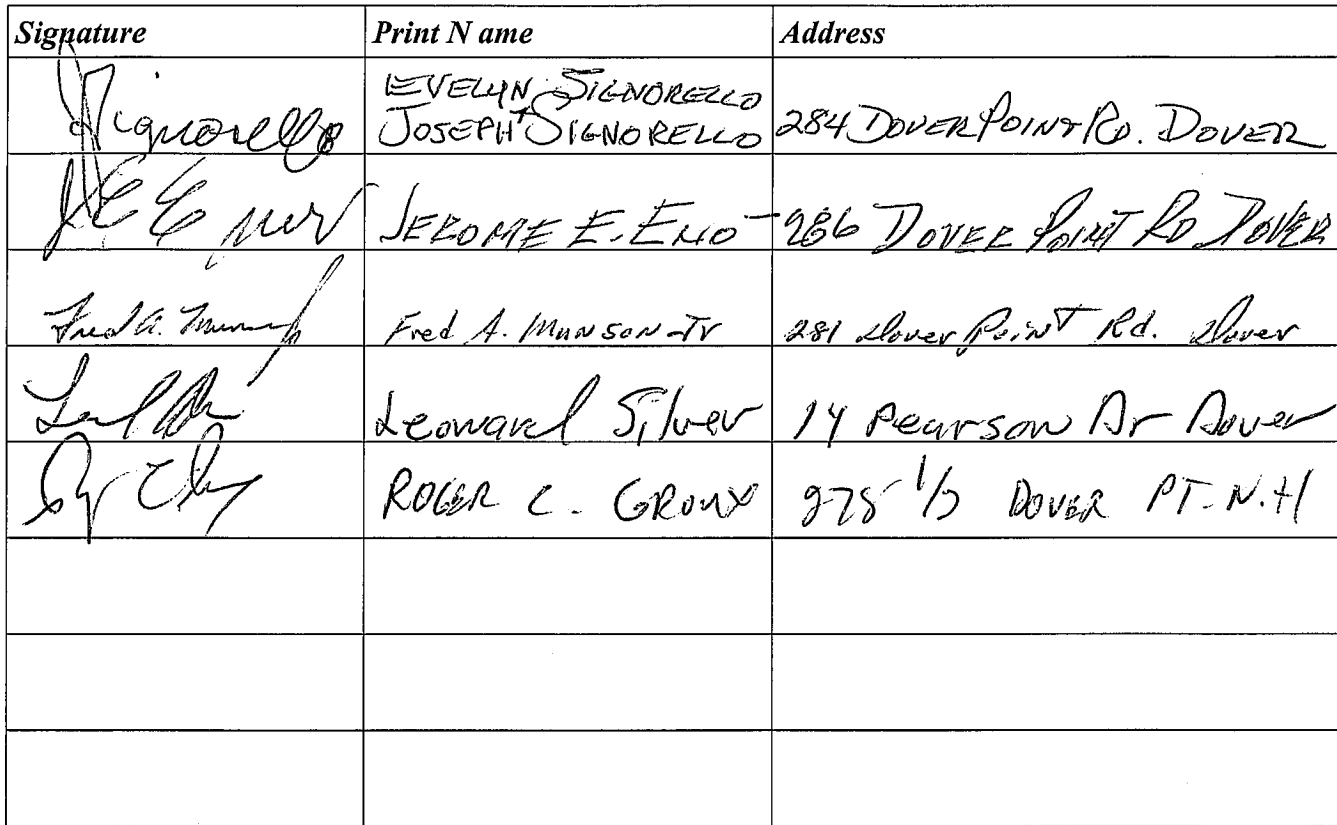 Signature Print N ame Address
EVELYN SIGNORELLO
Signorello JOSEPH SIGNORELLO 284 DOVER POINT RD. DOVER
JEROME E. ENO 286 DOVER POINT RD DOVER
Fred A. Munson Jr 281 Dover Point Rd. Dover
Leonard Silver 14 Pearson Dr Dover
ROGER C. GROUX 278 1/2 DOVER PT. N.H